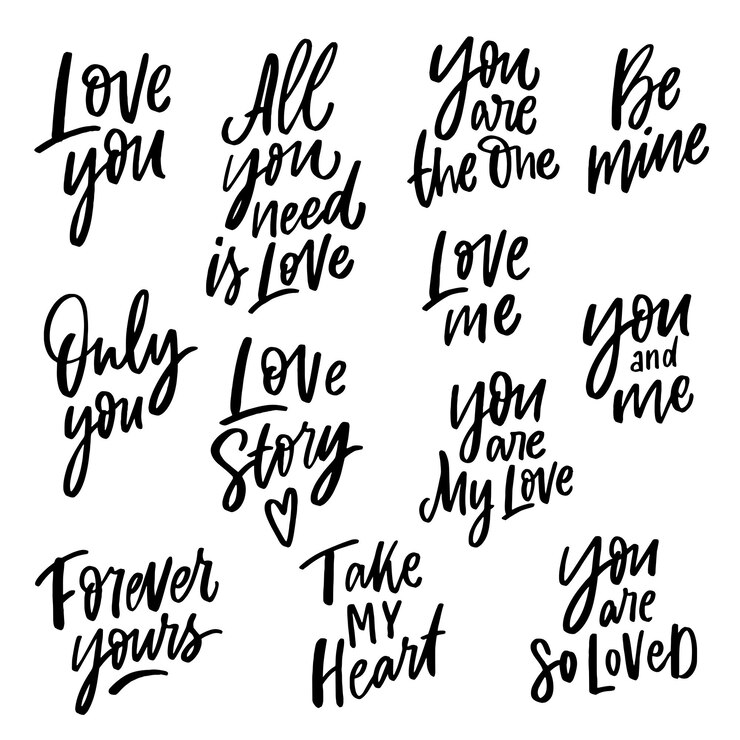 Love
you
All
you
need
is Love
you
are
the One
Be
mine
Love
me
Only
you
Love
Story
you
and
me
you
are
My Love
Forever
yours
Take
MY
Heart
you
are
So LoveD